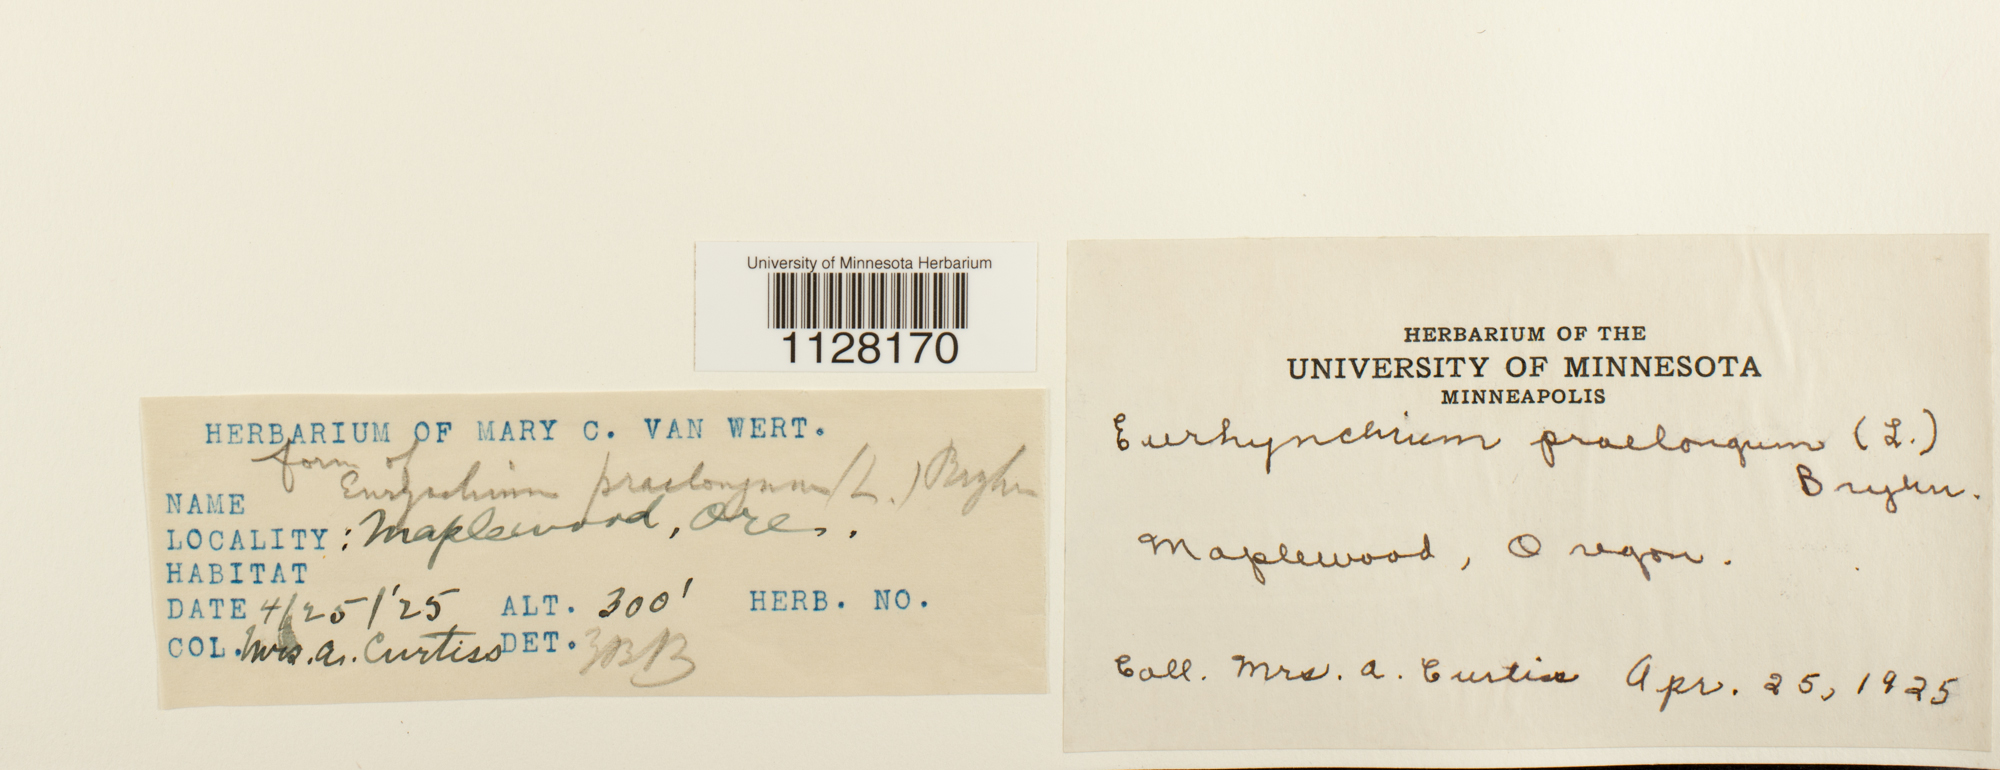 University of Minnesota Herbarium
1128170
HERBARIUM OF MARY C. VAN WERT.
form of
NAME Eurynchium praelongum (L.) Bryhn
LOCALITY: Maplewood, Ore.
HABITAT
DATE 4/25/'25 ALT. 300' HERB. NO.
COL. Mrs. A. Curtiss DET.
HERBARIUM OF THE
UNIVERSITY OF MINNESOTA
MINNEAPOLIS
Eurhynchium praelongum (L.)
Bryhn.
Maplewood, Oregon.
Coll. Mrs. A. Curtiss Apr. 25, 1925